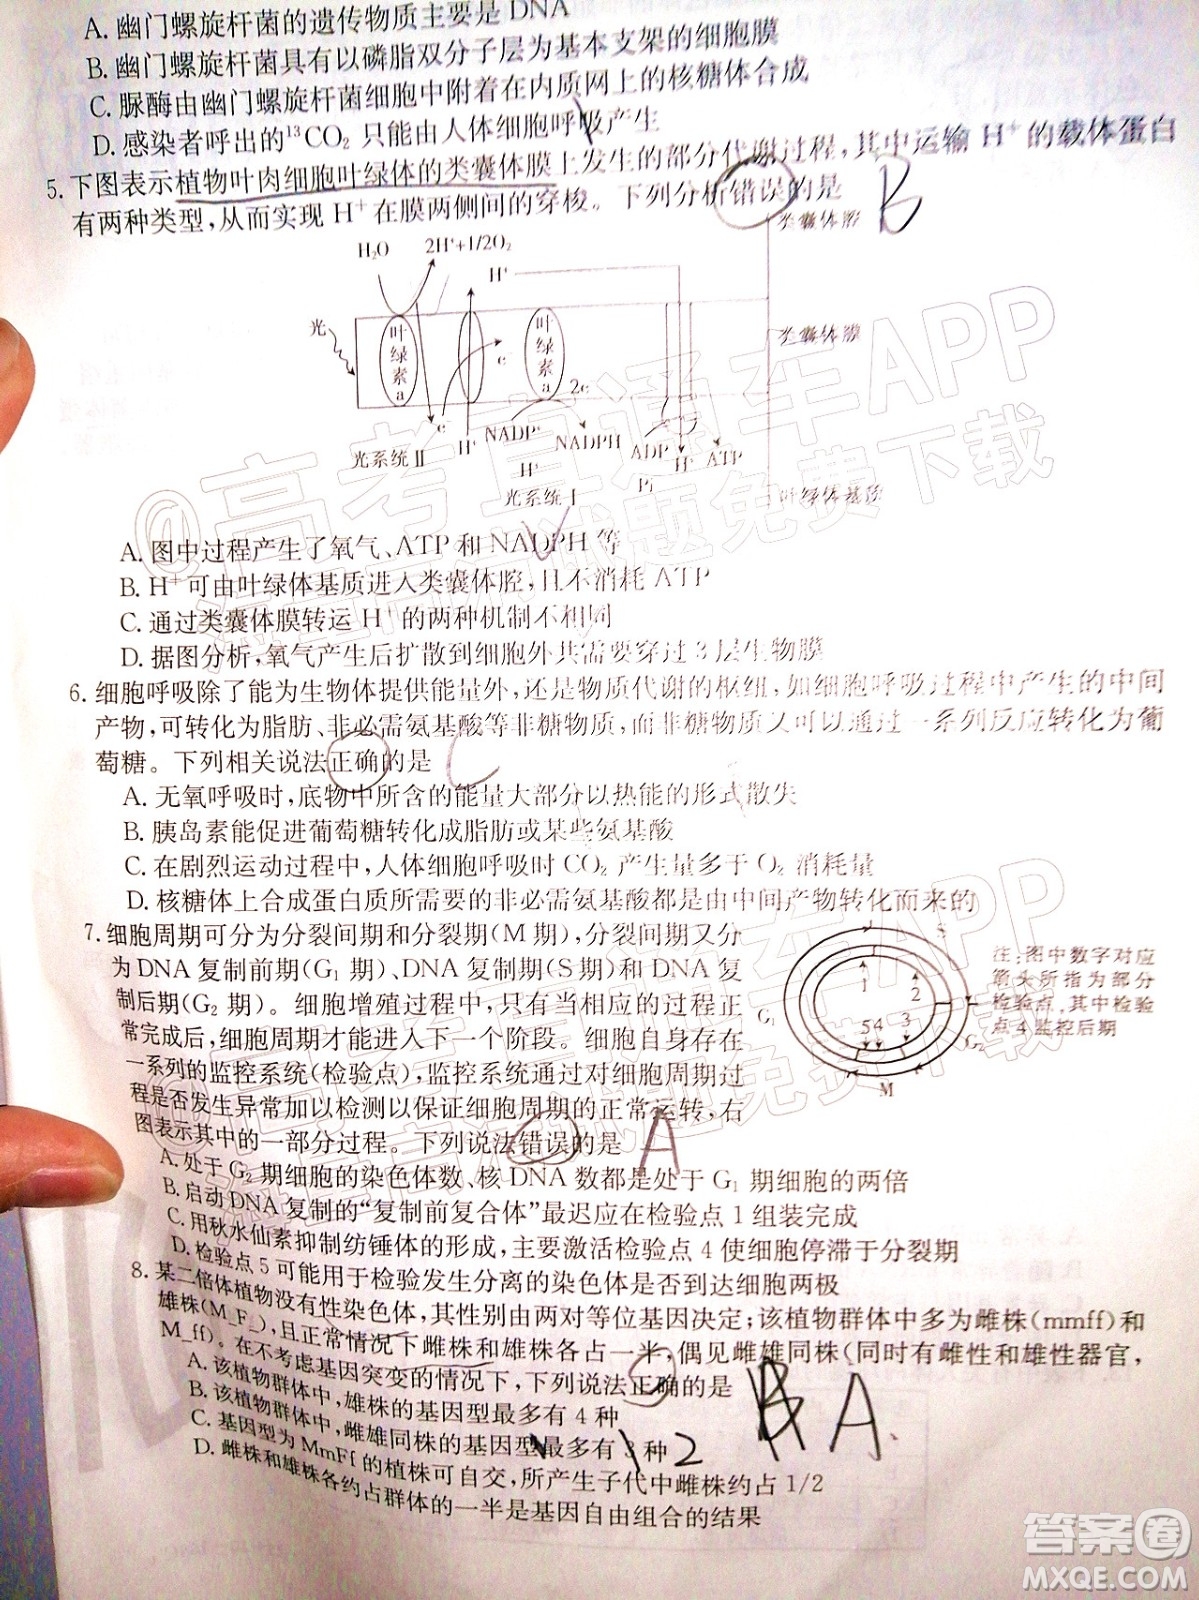 A. 幽门螺旋杆菌的遗传物质主要是 DNA
B. 幽门螺旋杆菌具有以磷脂双分子层为基本支架的细胞膜
C. 脲酶由幽门螺旋杆菌细胞中附着在内质网上的核糖体合成
D. 感染者呼出的¹³CO₂ 只能由人体细胞呼吸产生
5. 下图表示植物叶肉细胞叶绿体的类囊体膜上发生的部分代谢过程,其中运输 H⁺ 的载体蛋白
有两种类型,从而实现 H⁺ 在膜两侧间的穿梭。下列分析错误的是
B
H₂O 2H⁺+1/2O₂ H⁺ 类囊体腔
光 叶绿素a e 叶绿素a 2e 类囊体膜
e H⁺ NADP⁺ NADPH ADP H⁺ ATP
光系统Ⅱ H⁺ Pi
光系统Ⅰ 叶绿体基质
A. 图中过程产生了氧气、ATP 和 NADPH 等
B. H⁺ 可由叶绿体基质进入类囊体腔,且不消耗 ATP
C. 通过类囊体膜转运 H⁺ 的两种机制不相同
D. 据图分析,氧气产生后扩散到细胞外共需穿过 3 层生物膜
6. 细胞呼吸除了能为生物体提供能量外,还是物质代谢的枢纽,如细胞呼吸过程中产生的中间
产物,可转化为脂肪、非必需氨基酸等非糖物质,而非糖物质又可以通过一系列反应转化为葡
萄糖。下列相关说法正确的是
C
A. 无氧呼吸时,底物中所含的能量大部分以热能的形式散失
B. 胰岛素能促进葡萄糖转化成脂肪或某些氨基酸
C. 在剧烈运动过程中,人体细胞呼吸时 CO₂ 产生量多于 O₂ 消耗量
D. 核糖体上合成蛋白质所需要的非必需氨基酸都是由中间产物转化而来的
7. 细胞周期可分为分裂间期和分裂期(M 期),分裂间期又分
为 DNA 复制前期(G₁ 期)、DNA 复制期(S 期)和 DNA 复
制后期(G₂ 期)。细胞增殖过程中,只有当相应的过程正
常完成后,细胞周期才能进入下一个阶段。细胞自身存在
一系列的监控系统(检验点),监控系统通过对细胞周期过
程是否发生异常加以检测以保证细胞周期的正常运转,右
图表示其中的一部分过程。下列说法错误的是
A
S
1
2
G₁ 5 4 3
G₂
M
注:图中数字对应
箭头所指为部分
检验点,其中检验
点 4 监控后期
A. 处于 G₂ 期细胞的染色体数、核 DNA 数都是处于 G₁ 期细胞的两倍
B. 启动 DNA 复制的“复制前复合体”最迟应在检验点 1 组装完成
C. 用秋水仙素抑制纺锤体的形成,主要激活检验点 4 使细胞停滞于分裂期
D. 检验点 5 可能用于检验发生分离的染色体是否到达细胞两极
8. 某二倍体植物没有性染色体,其性别由两对等位基因决定;该植物群体中多为雌株(mmff)和
雄株(M_F_),且正常情况下雌株和雄株各占一半,偶见雌雄同株(同时有雌性和雄性器官,
M_ff)。在不考虑基因突变的情况下,下列说法正确的是
A
A. 该植物群体中,雄株的基因型最多有 4 种
B. 该植物群体中,雌雄同株的基因型最多有 3 种
2
C. 基因型为 MmFf 的植株可自交,所产生子代中雌株约占 1/2
D. 雌株和雄株各约占群体的一半是基因自由组合的结果
@高考直通车APP
海量高清试题免费下载
@高考直通车APP
海量高清试题免费下载
答案圈
MXQE.COM